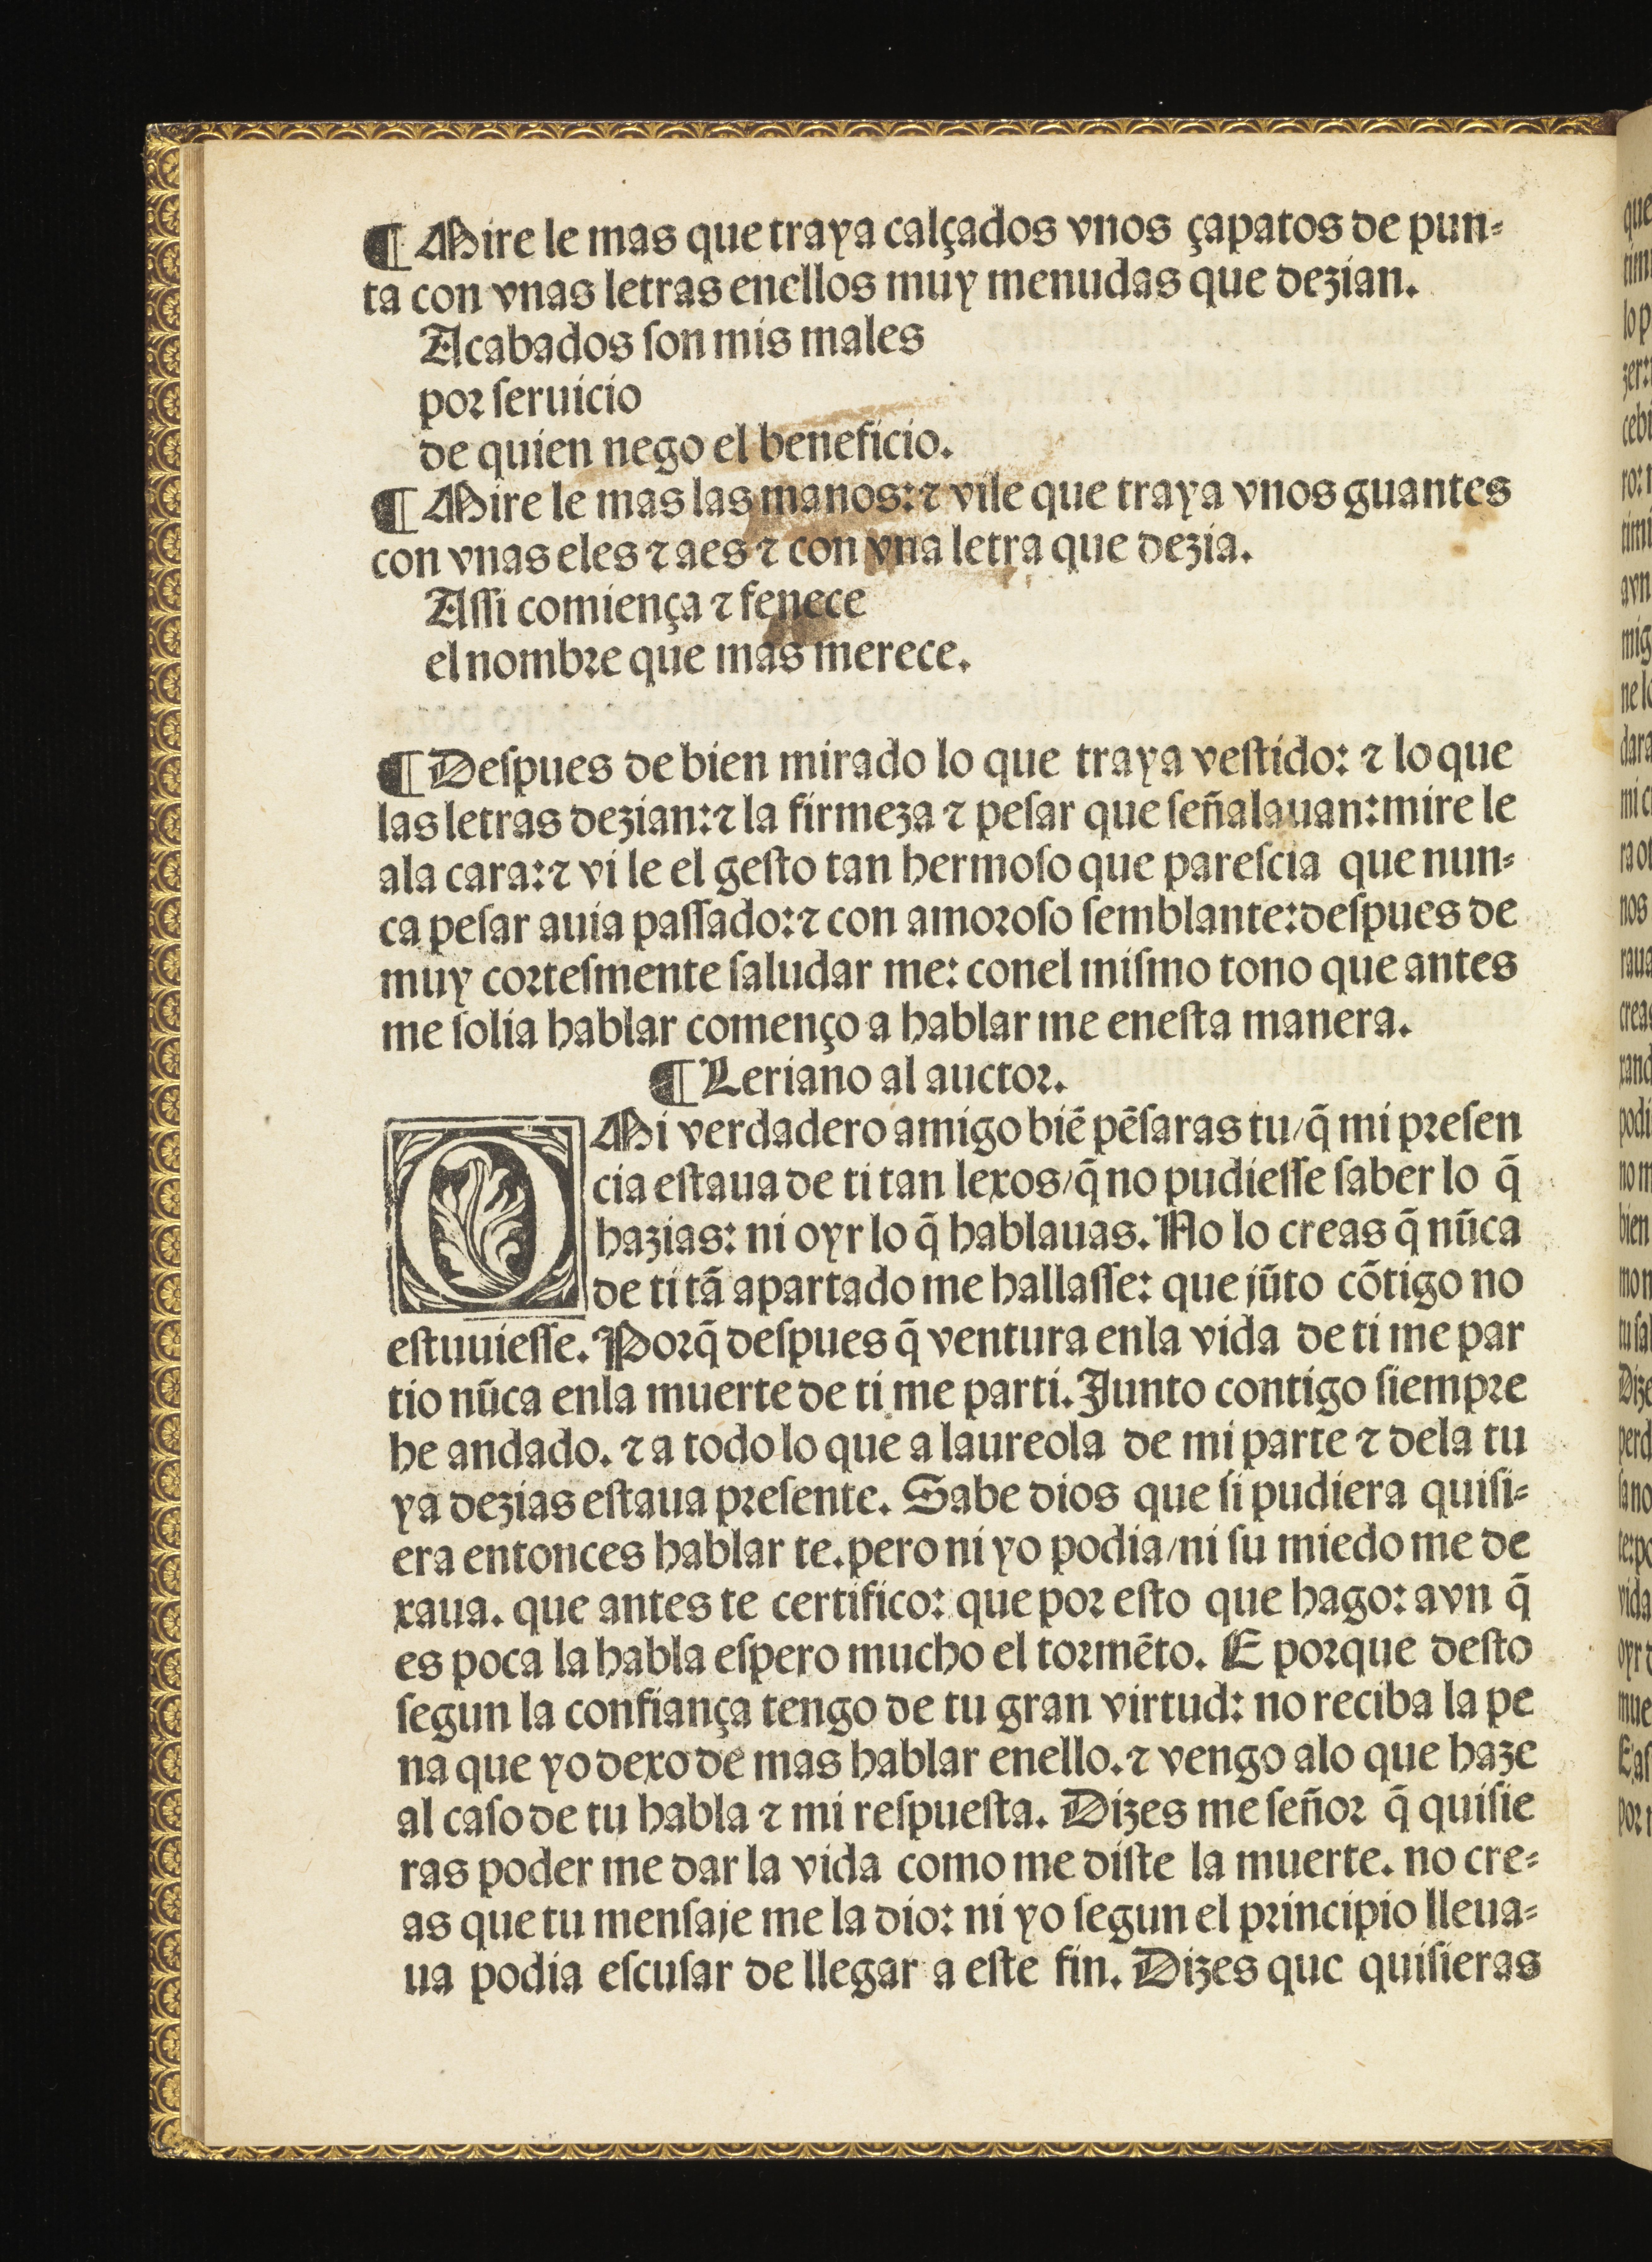 ¶ Mire le mas que traya calçados vnos çapatos de pun-
ta con vnas letras enellos muy menudas que dezian.
Acabados ſon mis males
por ſeruicio
de quien nego el beneficio.
¶ Mire le mas las manos: ⁊ vile que traya vnos guantes
con vnas eles ⁊ aes ⁊ con vna letra que dezia.
Aſſi comiença ⁊ fenece
el nombre que mas merece.
¶ Deſpues de bien mirado lo que traya veſtido: ⁊ lo que
las letras dezian: ⁊ la firmeza ⁊ peſar que ſeñalauan: mire le
ala cara: ⁊ vi le el geſto tan hermoſo que pareſcia que nun-
ca peſar auia paſſado: ⁊ con amoroſo ſemblante: deſpues de
muy corteſmente ſaludar me: conel miſmo tono que antes
me ſolia hablar començo a hablar me eneſta manera.
¶ Leriano al auctor.
O Mi verdadero amigo biē pēſaras tu/ q̄ mi preſen
cia eſtaua de ti tan lexos/ q̄ no pudieſſe ſaber lo q̄
hazias: ni oyr lo q̄ hablauas. No lo creas q̄ nūca
de ti tā apartado me hallaſſe: que jūto cōtigo no
eſtuuieſſe. Porq̄ deſpues q̄ ventura enla vida de ti me par
tio nūca enla muerte de ti me parti. Junto contigo ſiempre
he andado. ⁊ a todo lo que a laureola de mi parte ⁊ dela tu
ya dezias eſtaua preſente. Sabe dios que ſi pudiera quiſi-
era entonces hablar te. pero ni yo podia/ ni ſu miedo me de
xaua. que antes te certifico: que por eſto que hago: avn q̄
es poca la habla eſpero mucho el tormēto. E porque deſto
ſegun la confiança tengo de tu gran virtud: no reciba la pe
na que yo dexo de mas hablar enello. ⁊ vengo alo que haze
al caſo de tu habla ⁊ mi reſpueſta. Dizes me ſeñor q̄ quiſie
ras poder me dar la vida como me diſte la muerte. no cre-
as que tu menſaje me la dio: ni yo ſegun el principio lleua-
ua podia eſcuſar de llegar a eſte fin. Dizes que quiſieras